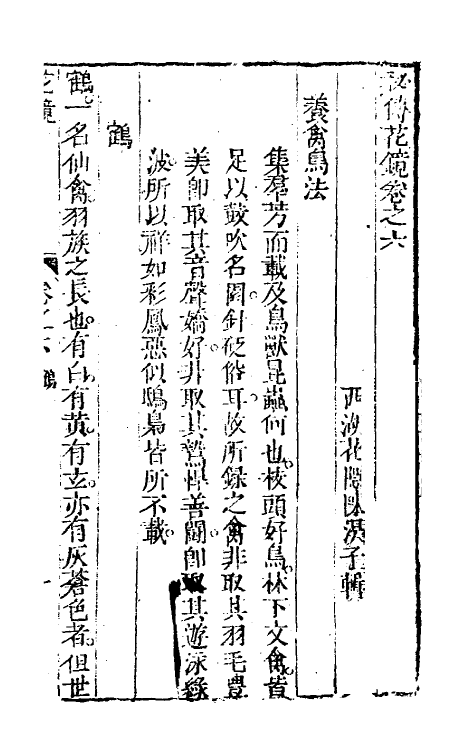 秘傳花鏡卷之六
西湖花隱陳淏子輯
養禽鳥法
集羣芳而載及鳥獸昆蟲何也枝頭好鳥林下文禽皆
足以鼓吹名園針砭俗耳故所録之禽非取其羽毛豐
美卽取其音聲嬌好非取其鷙悍善鬪卽取其遊泳綠
波所以祥如彩鳳惡似鴟梟皆所不載
鶴
鶴一名仙禽羽族之長也有白有黄有玄亦有灰蒼色者但世
花鏡 卷之六 鶴 一